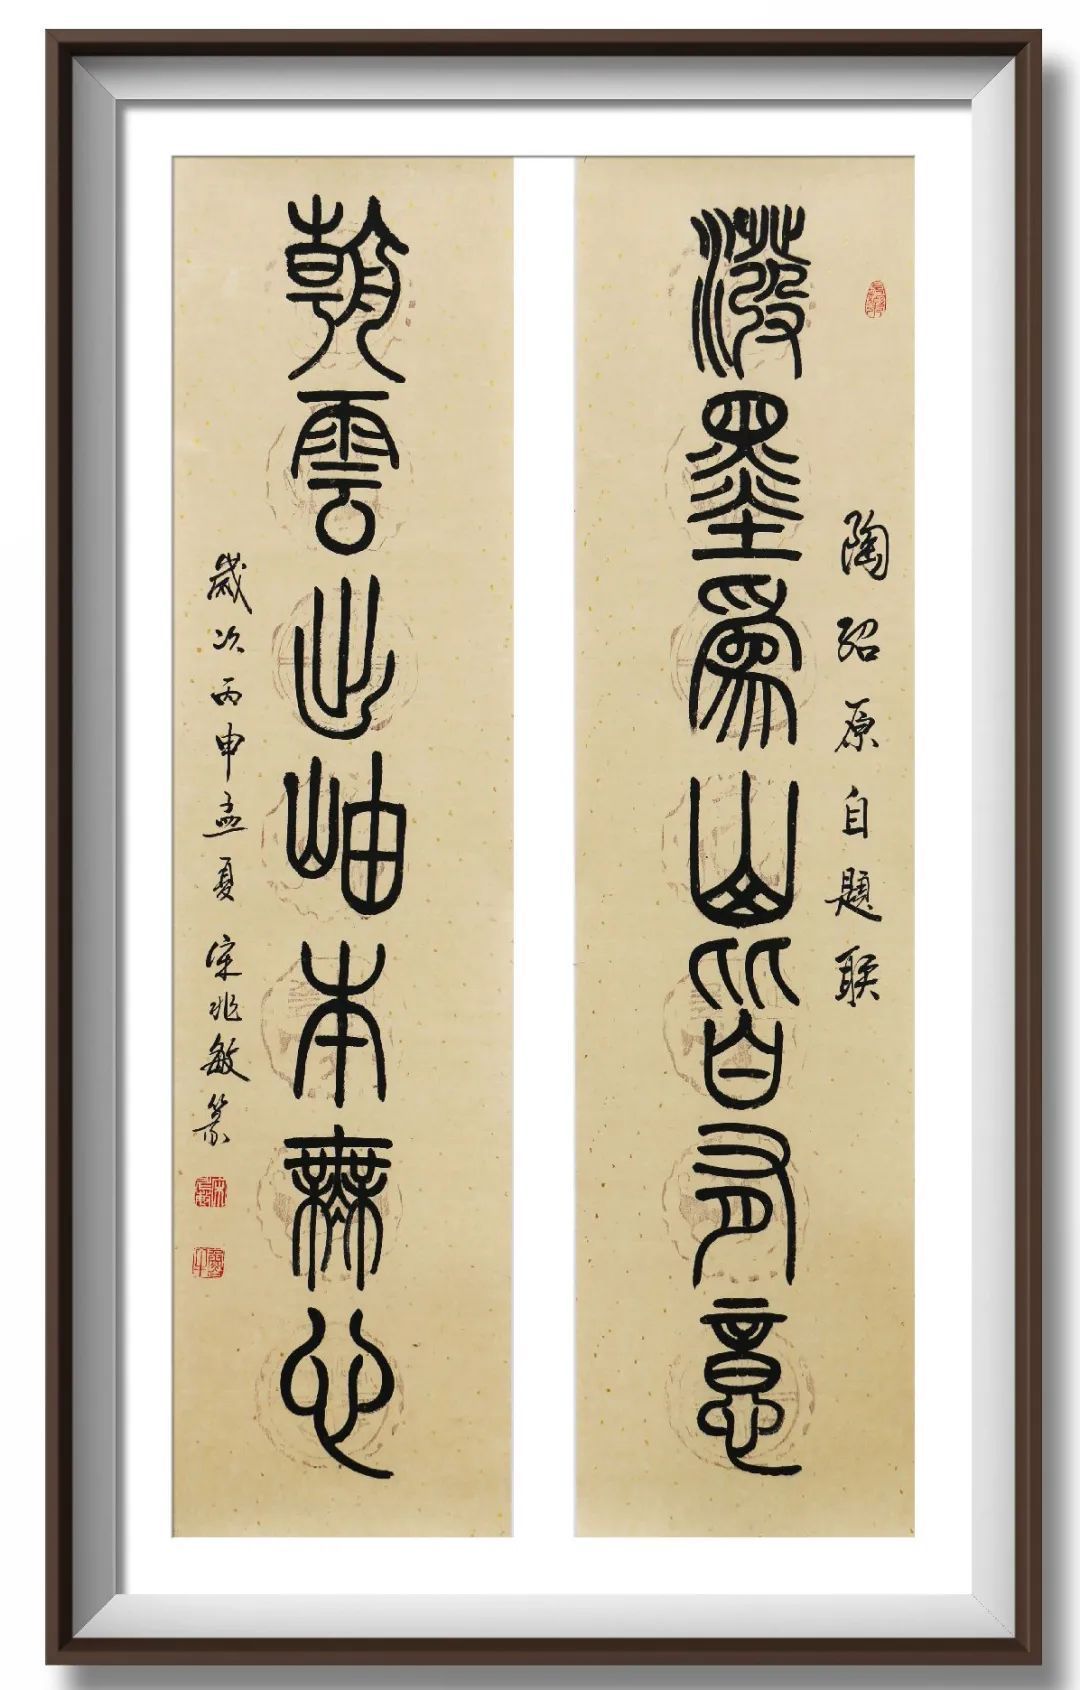 陶紹原自題聯
潑墨為山皆有意
朝雲出岫本無心
歲次丙申孟夏 宋兆敏篆